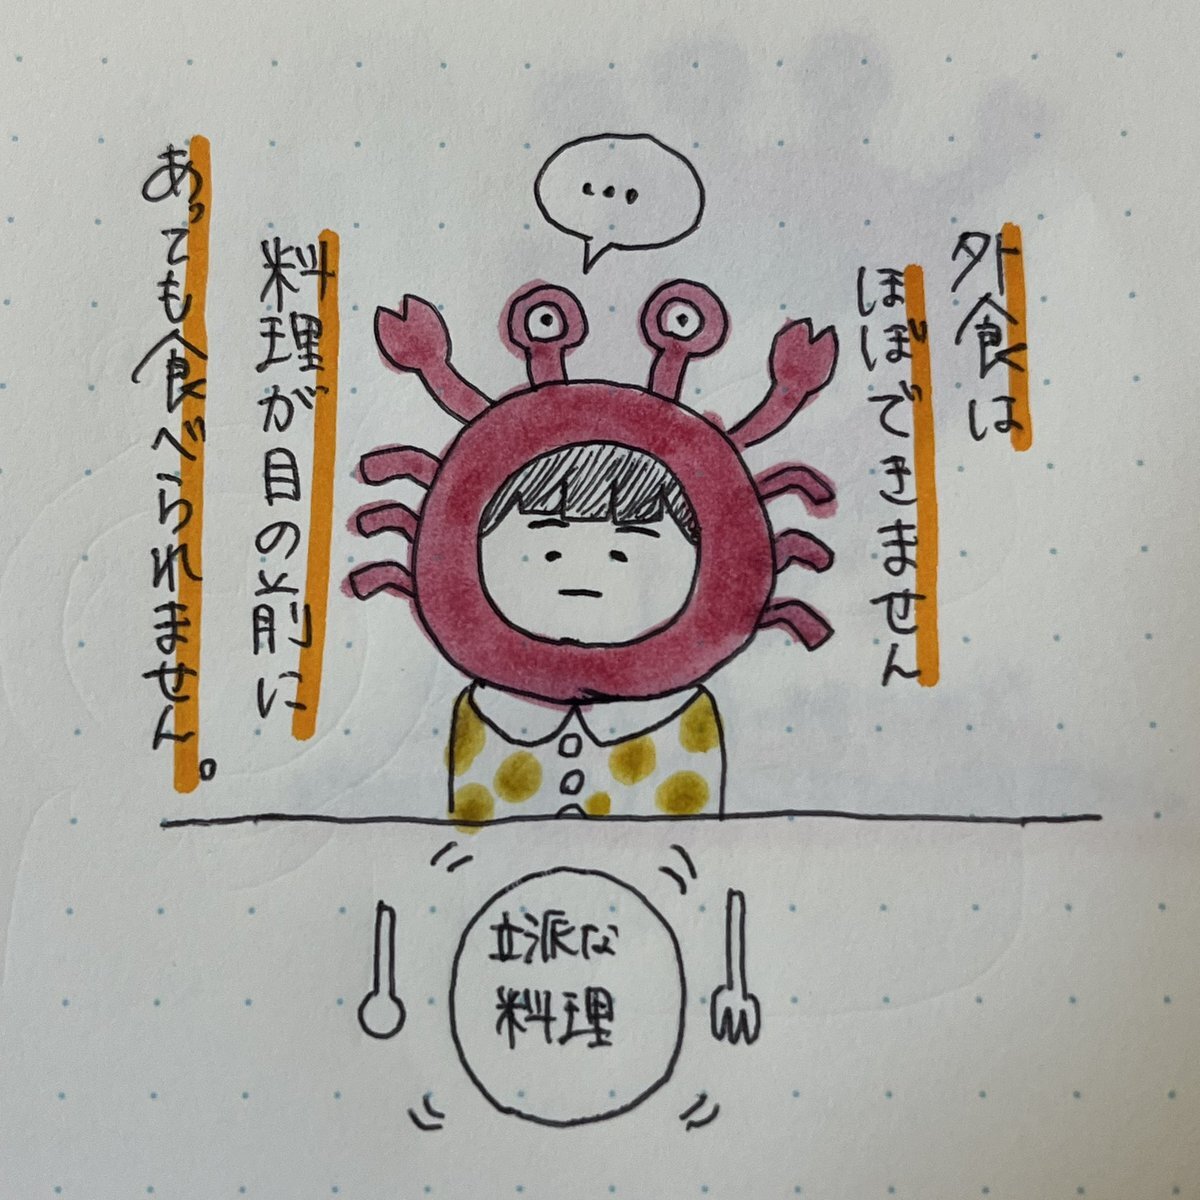 外食は
ほぼできません
料理が目の前に
あっても食べられません。
...
立派な
料理